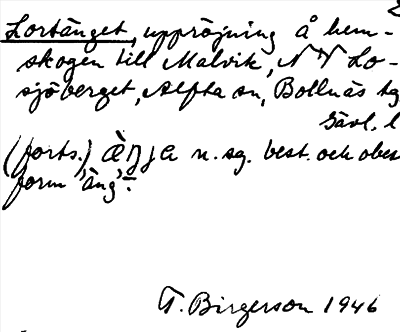 Lortänget, uppröjning å hem-
skogen till Malvik, N V Lo-
sjöberget, Alfta sn, Bollnäs tg
Gävl. l
(forts.) àŋja n. sg. best. och obest
form 'äng'.
T. Birgerson 1946